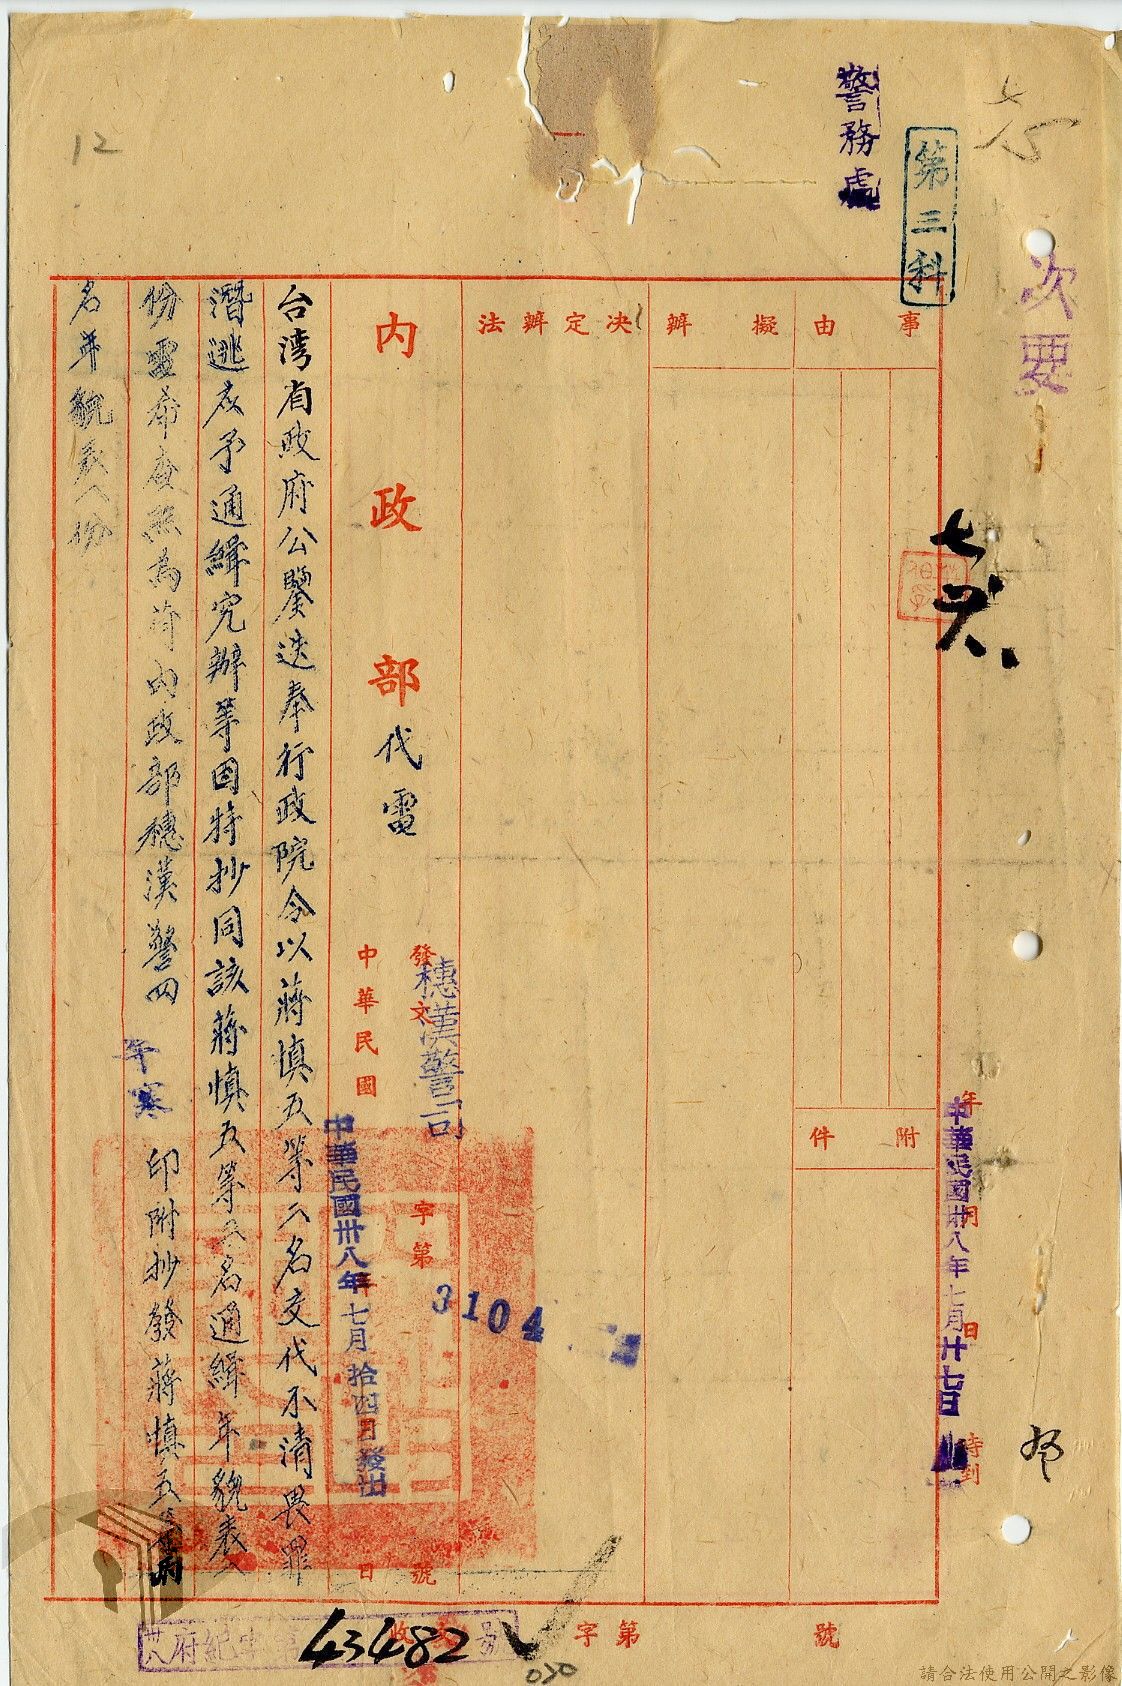 七
15
次要
警務處
第三科
事由
擬辦
決定辦法
附件
年月日時到
中華民國卅八年七月廿七日
內政部代電
發文
字第
號
穗漢警司
3104
中華民國
日
中華民國卅八年七月拾四日發出
台湾省政府公鑒迭奉行政院令以蔣慎五等二名交代不清畏罪
潛逃应予通緝究辦等因特抄同該蔣慎五等二名通緝年貌表八
份電希查照為荷內政部穗漢警四
午寒
印附抄發蔣慎五等兩
名年貌表八份
收
字第
號
43482
020
12
請合法使用公開之影像